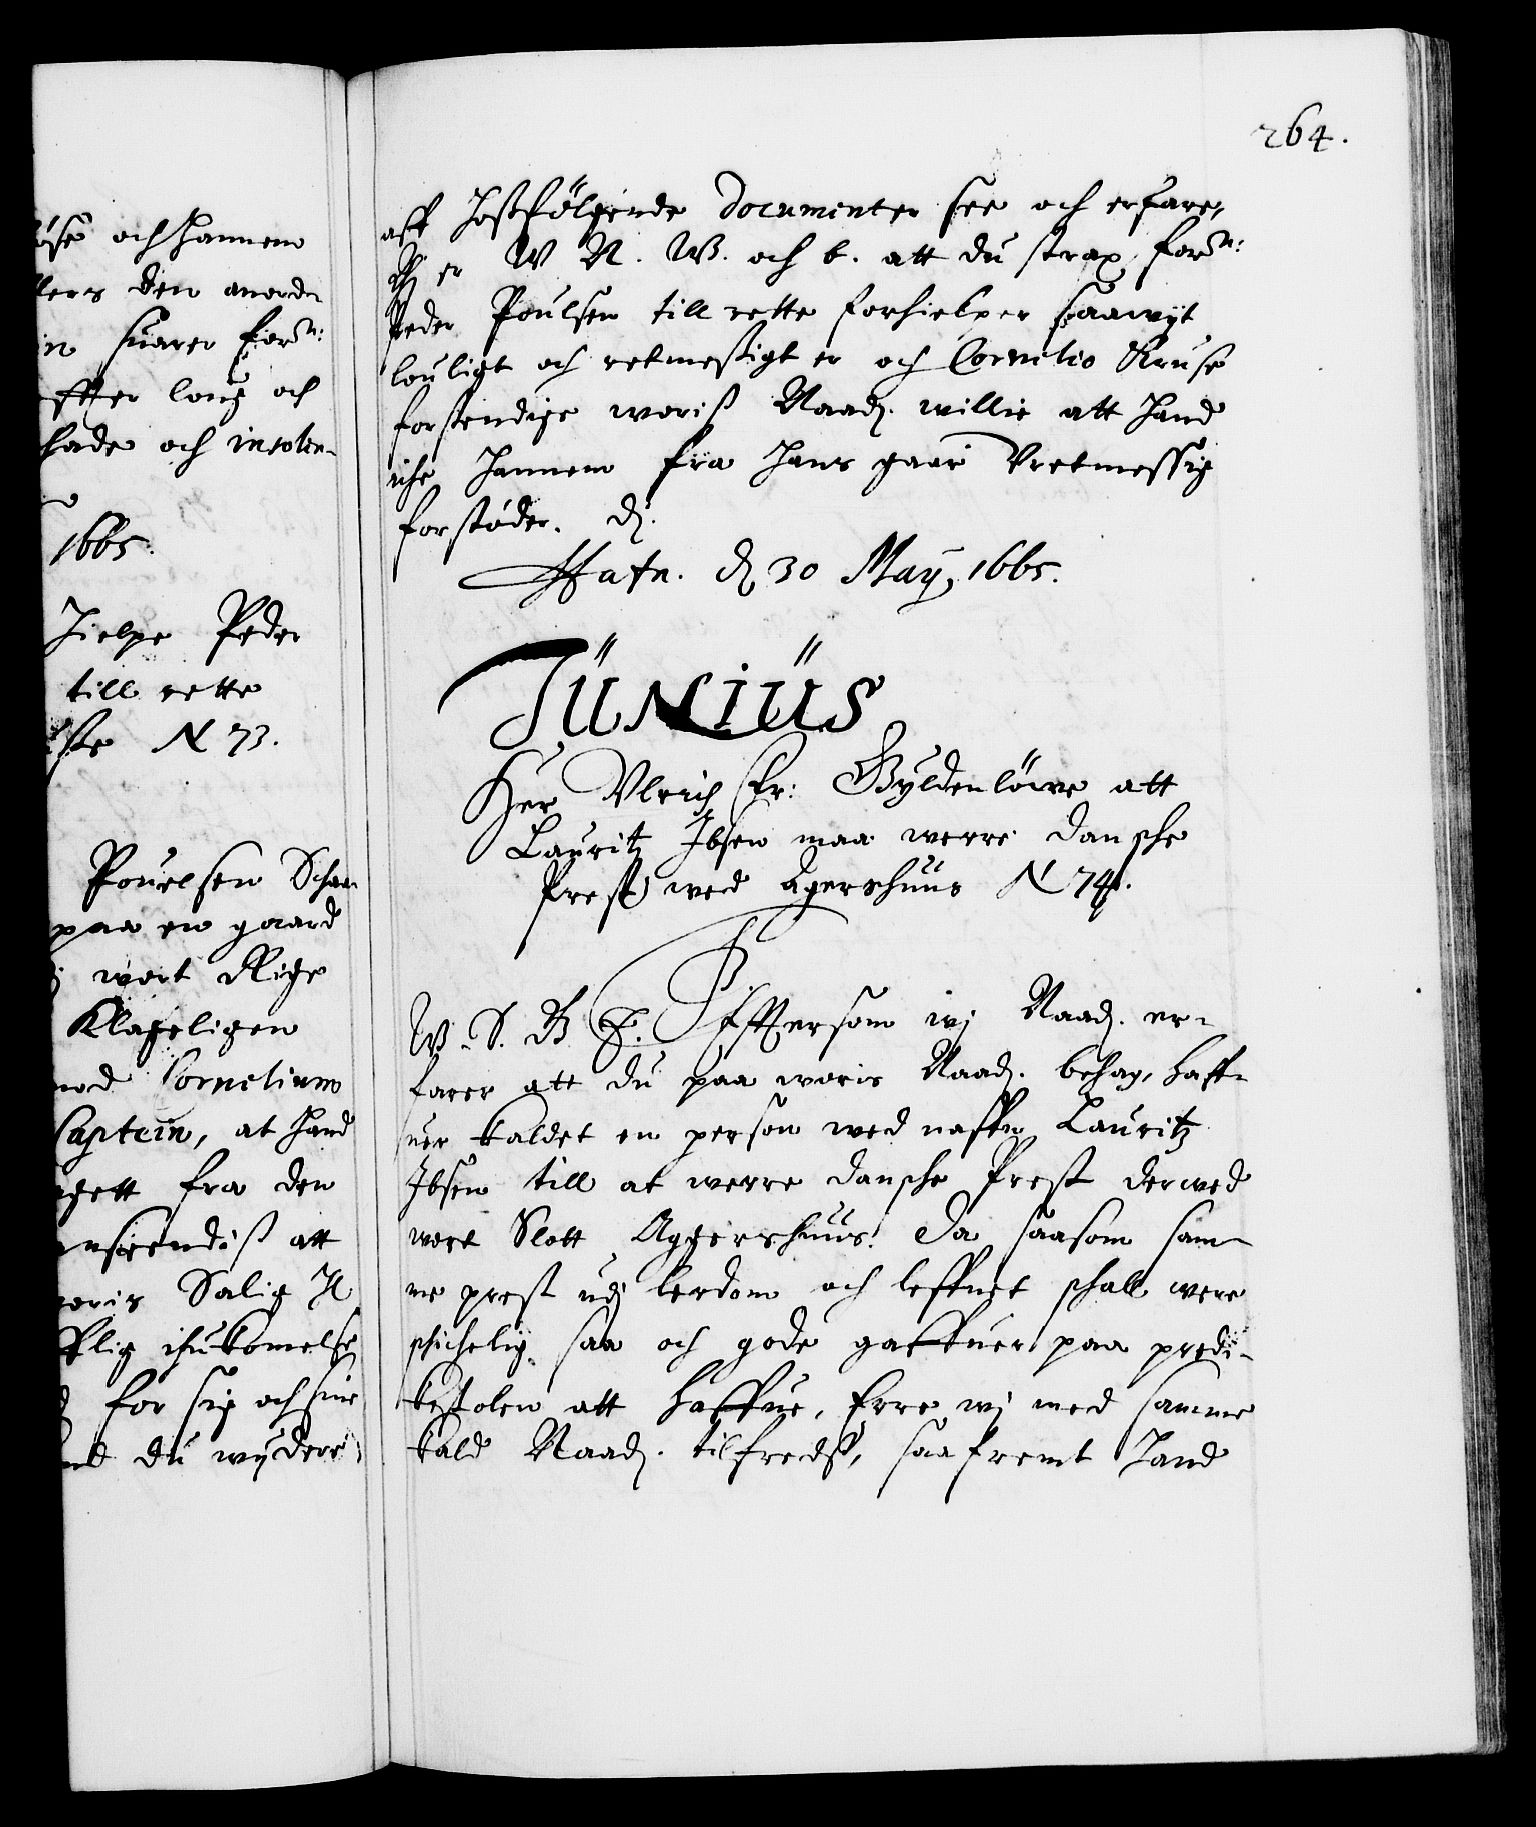 264.
öse och hannem
lers den anord-
in suarer for.ne
ffter loug och
hade och insolen-
1665.
hielpe Peder
till rette
N 73.
Pouelsen Schaa
paa en gaard
wort Rige
Klageligen
mod Cornelium
Captein, at hand
gett fra den
att
woris Salig H
ihukomelse
for sig och sine
du wydere
aff hosfølgende documenter see och erfare,
Thj er W N. W. och b. att du strax for.ne
Peder Poulsen till rette forhielper saawijt
louligt och retmessigt er och Cornelio Kruse
forstendige woris Naad. willie att hand
iche hannem fra hans gaar Vretmessig
forstøder. D.
Hafn. d 30 Maij 1665.
Junius
Her Vlrich Fr: Gyldenlöwe att
Lauritz Ibsen maa werre dansche
Prest wed Agershuus N 74.
W. S. B G. T. Effttersom wj Naad. er-
farer att du paa woris Naad. behag, haff-
uer kaldet en person wed naffn Lauritz
Ibsen till at werre dansche Prest derwed
wort Slott Aggershuus. Da saasom sam-
me prest udj lerdom och leffnet schall were
schichelig, saa och gode gaffuer paa predi-
kestolen att haffue, Erre wj med samme
kald Naad. tilfreds, saafremt hand